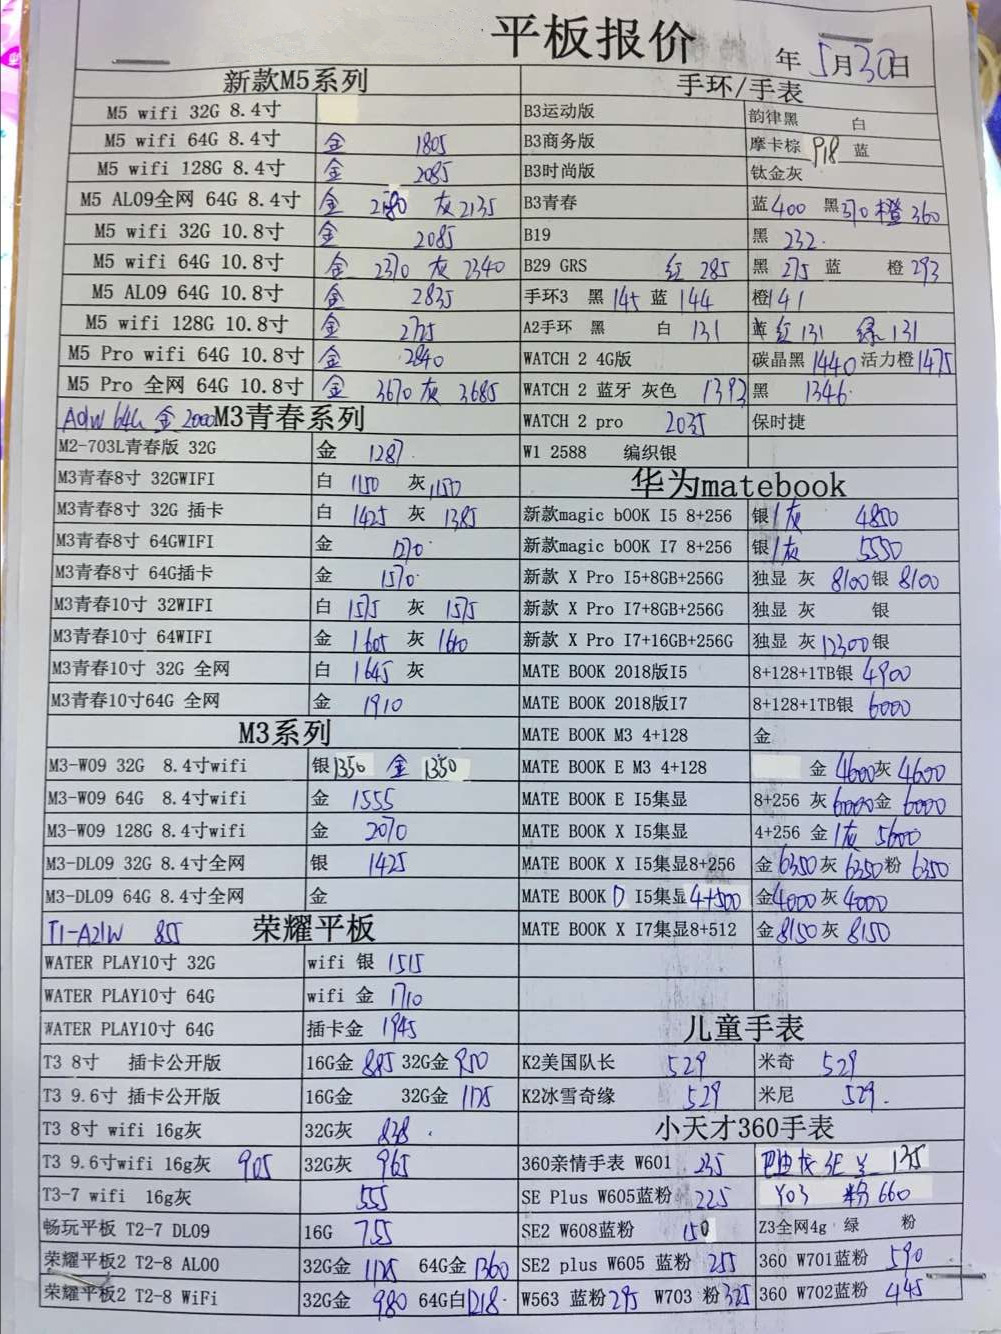 平板报价
年 5月30日
新款M5系列
M5 wifi 32G 8.4寸
M5 wifi 64G 8.4寸 金 1805
M5 wifi 128G 8.4寸 金 2085
M5 AL09全网 64G 8.4寸 金 灰 2135
M5 wifi 32G 10.8寸 金 2085
M5 wifi 64G 10.8寸 金 2370 灰 2340
M5 AL09 64G 10.8寸 金 2835
M5 wifi 128G 10.8寸 金 2725
M5 Pro wifi 64G 10.8寸 金 2840
M5 Pro 全网 64G 10.8寸 金 3670 灰 3685
A09W 64G 金 2000 M3青春系列
M2-703L青春版 32G 金 1287
M3青春8寸 32GWIFI 白 1150 灰 1150
M3青春8寸 32G 插卡 白 1425 灰 1385
M3青春8寸 64GWIFI 金 1270
M3青春8寸 64G插卡 金 1570
M3青春10寸 32WIFI 白 1575 灰 1575
M3青春10寸 64WIFI 金 1605 灰 1600
M3青春10寸 32G 全网 白 1645 灰
M3青春10寸64G 全网 金 1910
M3系列
M3-W09 32G 8.4寸wifi 银 1350 金 1350
M3-W09 64G 8.4寸wifi 金 1555
M3-W09 128G 8.4寸wifi 金 2070
M3-DL09 32G 8.4寸全网 银 1425
M3-DL09 64G 8.4寸全网 金
T1-A21W 855 荣耀平板
WATER PLAY10寸 32G wifi 银 1515
WATER PLAY10寸 64G wifi 金 1710
WATER PLAY10寸 64G 插卡金 1945
T3 8寸 插卡公开版 16G金 885 32G金 950
T3 9.6寸 插卡公开版 16G金 32G金 1175
T3 8寸 wifi 16g灰 32G灰 838
T3 9.6寸wifi 16g灰 905 32G灰 965
T3-7 wifi 16g灰 555
畅玩平板 T2-7 DL09 16G 755
荣耀平板2 T2-8 AL00 32G金 1175 64G金 1360
荣耀平板2 T2-8 WiFi 32G金 980 64G白 1218
手环/手表
B3运动版 韵律黑 白
B3商务版 摩卡棕 918 蓝
B3时尚版 钛金灰
B3青春 蓝 400 黑 370 橙 360
B19 黑 232
B29 GRS 红 285 黑 275 蓝 橙 293
手环3 黑 145 蓝 144 橙 141
A2手环 黑 白 131 红 131 绿 131
WATCH 2 4G版 碳晶黑 1440 活力橙 1475
WATCH 2 蓝牙 灰色 1393 黑 1346
WATCH 2 pro 2035 保时捷
W1 2588 编织银
华为matebook
新款magic bOOK I5 8+256 银/灰 4850
新款magic bOOK I7 8+256 银/灰 5550
新款 X Pro I5+8GB+256G 独显 灰 8100 银 8100
新款 X Pro I7+8GB+256G 独显 灰 银
新款 X Pro I7+16GB+256G 独显 灰 12300 银
MATE BOOK 2018版I5 8+128+1TB银 4900
MATE BOOK 2018版I7 8+128+1TB银 6000
MATE BOOK M3 4+128 金
MATE BOOK E M3 4+128 金 4600 灰 4600
MATE BOOK E I5集显 8+256 灰 6000 金 6000
MATE BOOK X I5集显 4+256 金/灰 5600
MATE BOOK X I5集显8+256 金 6350 灰 6350 粉 6350
MATE BOOK D I5集显 4+500 金 4000 灰 4000
MATE BOOK X I7集显8+512 金 8150 灰 8150
儿童手表
K2美国队长 529 米奇 529
K2冰雪奇缘 529 米尼 529.
小天才360手表
360亲情手表 W601 235 SE 135
SE Plus W605蓝粉 225 Y03 粉 660
SE2 W608蓝粉 150 Z3全网4g 绿 粉
SE2 plus W605 蓝粉 255 360 W701蓝粉 590
W563 蓝粉 295 W703 粉 325 360 W702蓝粉 445